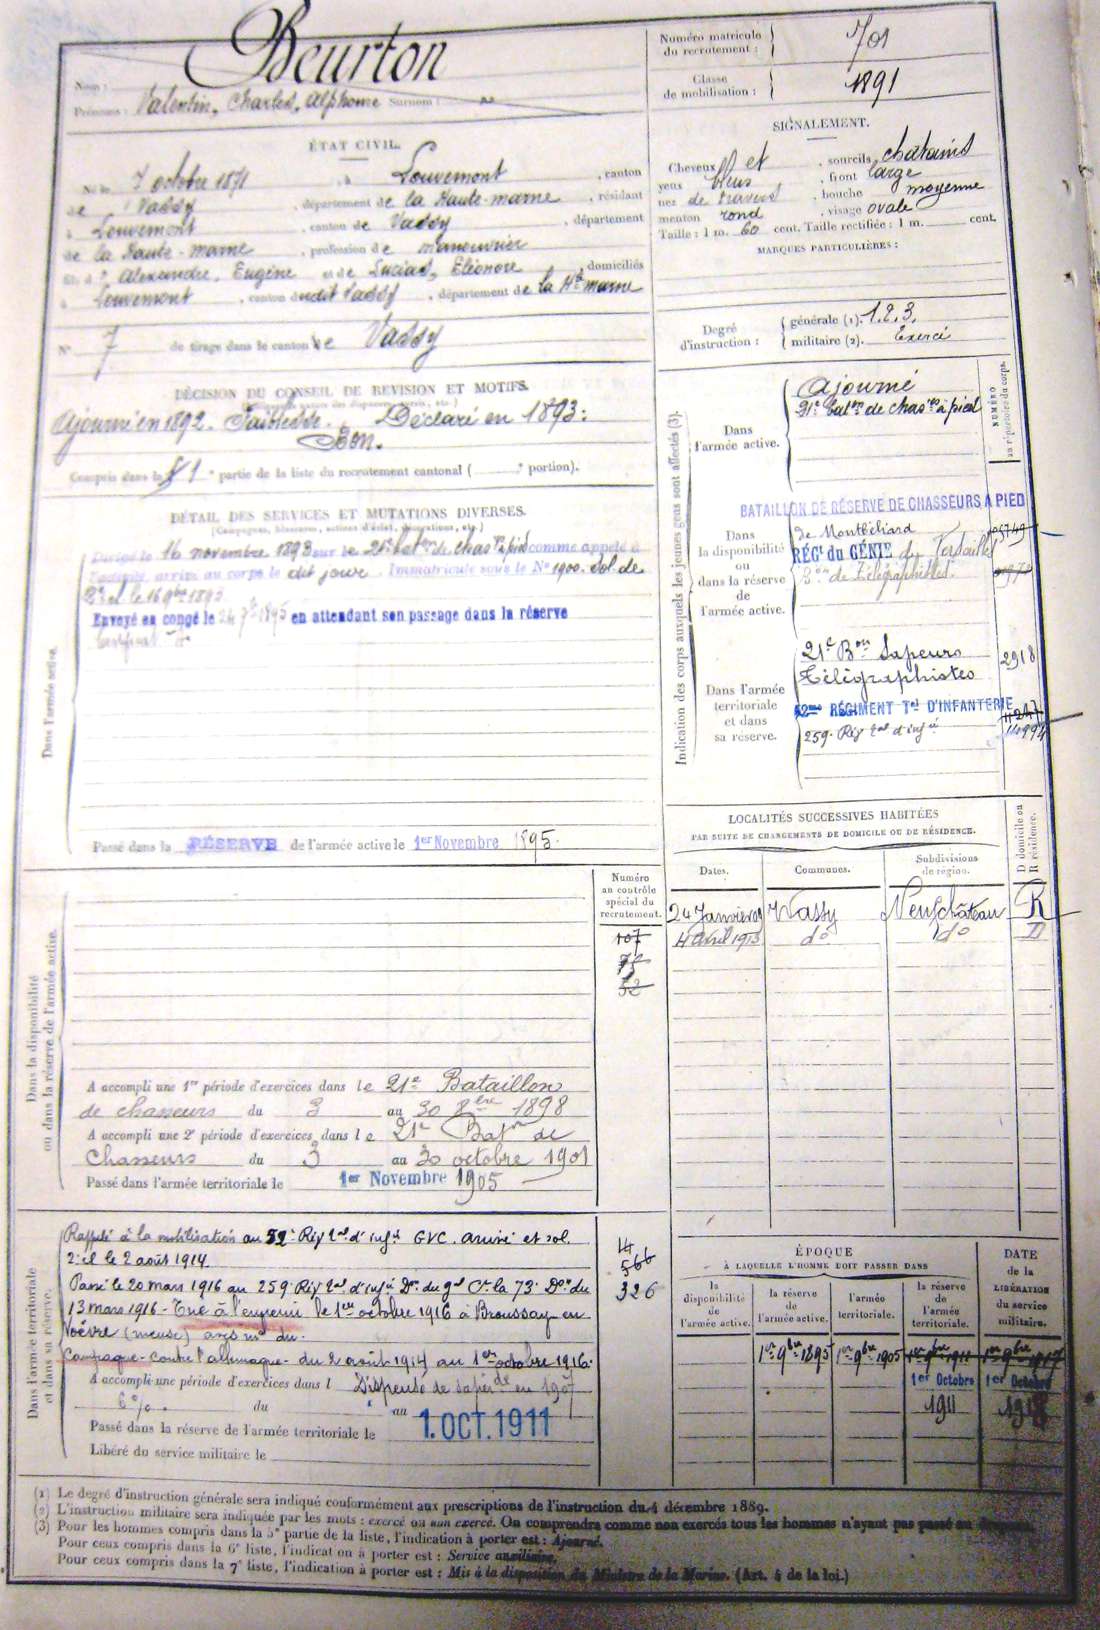 Beurton
Nom :
Prénoms : Valentin, Charles, Alphonse Surnom :
Numéro matricule du recrutement : 701
Classe de mobilisation : 1891
ÉTAT CIVIL.
Né le 7 octobre 1871, à Louvemont, canton
de Vassy, département de la Haute-marne, résidant
à Louvemont, canton de Vassy, département
de la Haute-marne, profession de manouvrier
fils d' Alexandre, Eugène et de Lucias, Eléonore domiciliés
à Louvemont, canton dudit Vassy, département de la Hte marne
N° 7 de tirage dans le canton de Vassy
SIGNALEMENT.
Cheveux et, sourcils chatains
yeux bleus, front large
nez de travers, bouche moyenne
menton rond, visage ovale
Taille : 1 m. 60 cent. Taille rectifiée : 1 m. cent.
MARQUES PARTICULIÈRES :
Degré d'instruction :
générale (1). 1.2.3.
militaire (2). Exercé
DÉCISION DU CONSEIL DE REVISION ET MOTIFS.
Ajourné en 1892. Faiblesse. Déclaré en 1893 :
Bon.
Compris dans la 1e partie de la liste du recrutement cantonal ( e portion).
DÉTAIL DES SERVICES ET MUTATIONS DIVERSES.
(Campagnes, blessures, actions d'éclat, décorations, etc.)
Dans l'armée active.
Dirigé le 16 novembre 1893 sur le 21e baton de chasrs à pied comme appelé à
l'activité, arrivé au corps le dit jour. Immatriculé sous le N° 1900. Sol. de
2e cl. le 16 9bre 1893
Envoyé en congé le 24 7bre 1895 en attendant son passage dans la réserve
Passé dans la RÉSERVE de l'armée active le 1er Novembre 1895.
Indication des corps auxquels les jeunes gens sont affectés (3).
NUMÉRO
au répertoire du corps.
Dans l'armée active.
Ajourné
21e baton de chasrs à pied
Dans la disponibilité ou dans la réserve de l'armée active.
BATAILLON DE RÉSERVE DE CHASSEURS A PIED
de Montbéliard 05749
RÉGt du GÉNIE de Versailles
Bon de Télégraphistes.
Dans l'armée territoriale et dans sa réserve.
21e Bon Sapeurs
Télégraphistes 2918
52me RÉGIMENT Tal D'INFANTERIE 11247
259e Rég. Tal d'infie
LOCALITÉS SUCCESSIVES HABITÉES
PAR SUITE DE CHANGEMENTS DE DOMICILE OU DE RÉSIDENCE.
Dates. Communes. Subdivisions de région. D domicile ou R résidence.
24 Janvier 09 Wassy Neufchâteau R
4 avril 1913 do do D
Numéro
au contrôle
spécial du
recrutement.
107
75
52
Dans la disponibilité
ou dans la réserve de l'armée active.
A accompli une 1re période d'exercices dans le 21e Bataillon
de chasseurs du 3 au 30 8bre 1898
A accompli une 2e période d'exercices dans le 21e Baton de
Chasseurs du 3 au 30 octobre 1901
Passé dans l'armée territoriale le 1er Novembre 1905
Dans l'armée territoriale
et dans sa réserve.
Rappelé à la mobilisation au 52e Rég Tal d'infie GVC. arrivé et sol.
2e cl le 2 août 1914
Passé le 20 mars 1916 au 259e Rég Tal d'infie Don du gal Ct la 73e Don du
13 mars 1916 - Tué à l'ennemi le 1er octobre 1916 à Broussay-en
Voëvre (meuse) avis mel du.
Campagne - contre l'allemagne - du 2 août 1914 au 1er octobre 1916.
14
566
326
A accompli une période d'exercices dans l Dispensé de sa période en 1907
6%. du au
Passé dans la réserve de l'armée territoriale le 1. OCT. 1911
Libéré du service militaire le
ÉPOQUE
À LAQUELLE L'HOMME DOIT PASSER DANS
la disponibilité de l'armée active.
la réserve de l'armée active.
l'armée territoriale.
la réserve de l'armée territoriale.
DATE DE LA LIBÉRATION du service militaire.
1er 9bre 1895 1er 9bre 1905 1er 9bre 1911 1er 9bre 1917
1er Octobre 1er Octobre
1911 1918
(1) Le degré d'instruction générale sera indiqué conformément aux prescriptions de l'instruction du 4 décembre 1889.
(2) L'instruction militaire sera indiquée par les mots : exercé ou non exercé. On comprendra comme non exercés tous les hommes n'ayant pas passé au
(3) Pour les hommes compris dans la 5e partie de la liste, l'indication à porter est : Ajourné.
Pour ceux compris dans la 6e liste, l'indication à porter est : Service auxiliaire.
Pour ceux compris dans la 7e liste, l'indication à porter est : Mis à la disposition du Ministre de la Marine. (Art. 4 de la loi.)